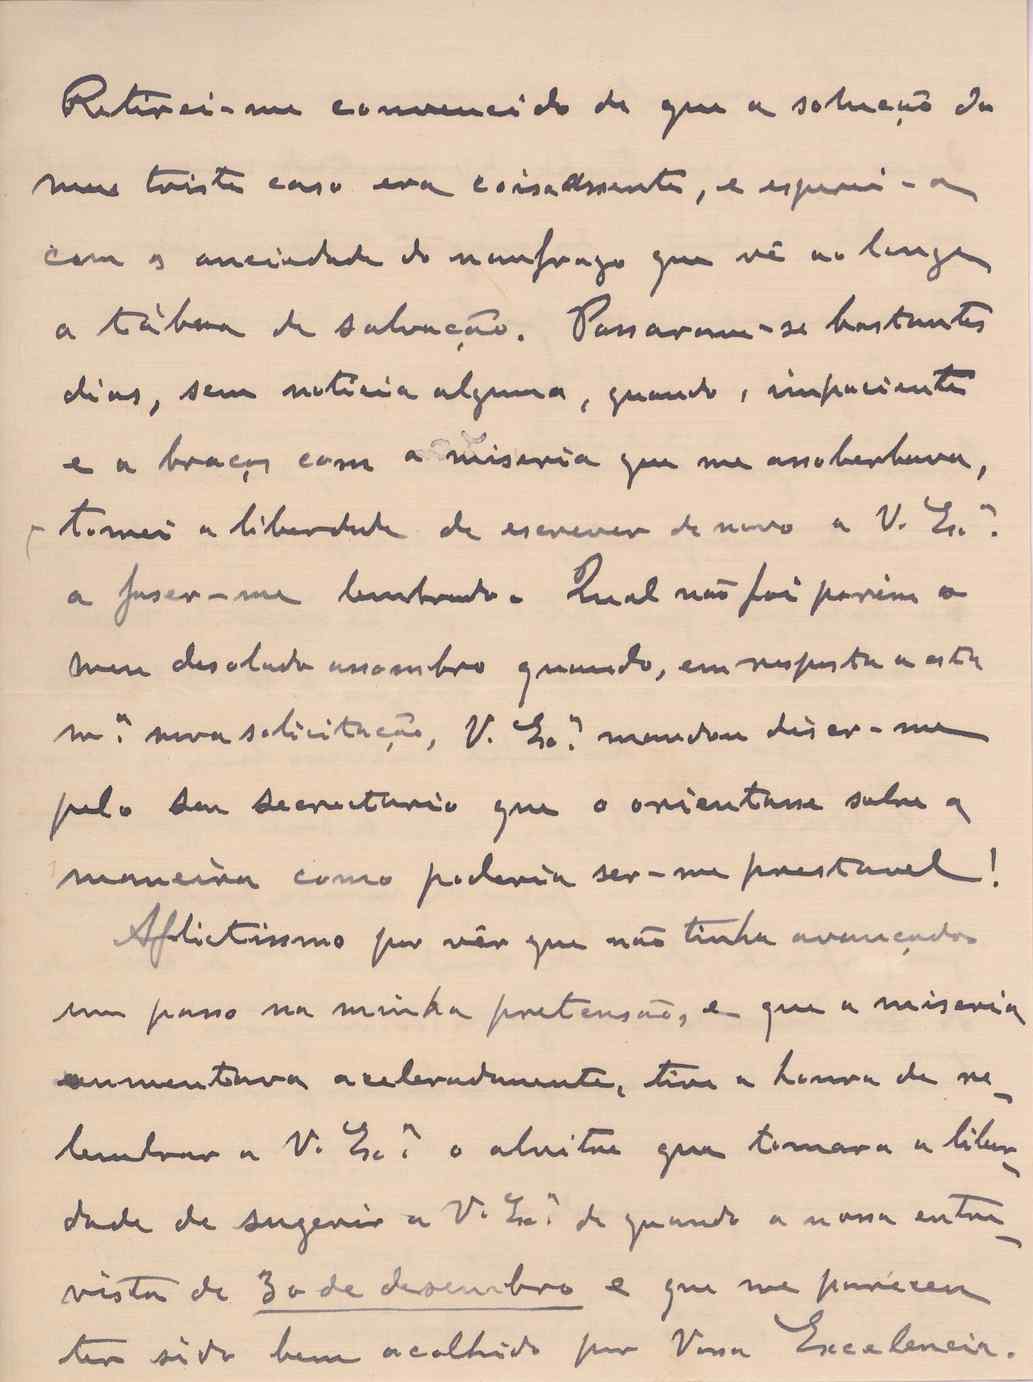 Retirei-me convencido de que a solucção do
meu triste caso era coisa assente, e esperei-a
com a anciedade do naufrago que vê ao longe
a tábua de salvação. Passaram-se bastantes
dias, sem noticia alguma, quando, impaciente
e a braços com a miseria que me assoberbava,
tomei a liberdade de escrever de novo a V. Exª.
a faser-me lembrado. Qual não foi porém o
meu desolado assombro quando, em resposta a esta
mª. nova solicitação, V. Exª. mandou diser-me
pelo seu secrectario que o orientasse sobre a
maneira como poderia ser-me prestavel!
Aflictissimo por vêr que não tinha avançado
um passo na minha pretensão, e que a miseria
aumentava aceleradamente, tive a honra de re-
lembrar a V. Exª. o alvitre que tomara a liber-
dade de sugerir a V. Exª. de quando a nossa entre-
vista de 30 de desembro e que me pareceu
ter sido bem acolhido por Vossa Excelencia.